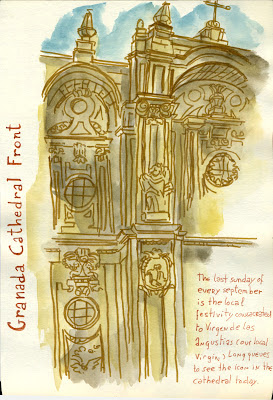 Granada Cathedral Front
The last sunday of
every september
is the local
festivity consacrated
to Virgen de las
Angustias (our local
Virgin). Long queues
to see the icon in the
cathedral today.